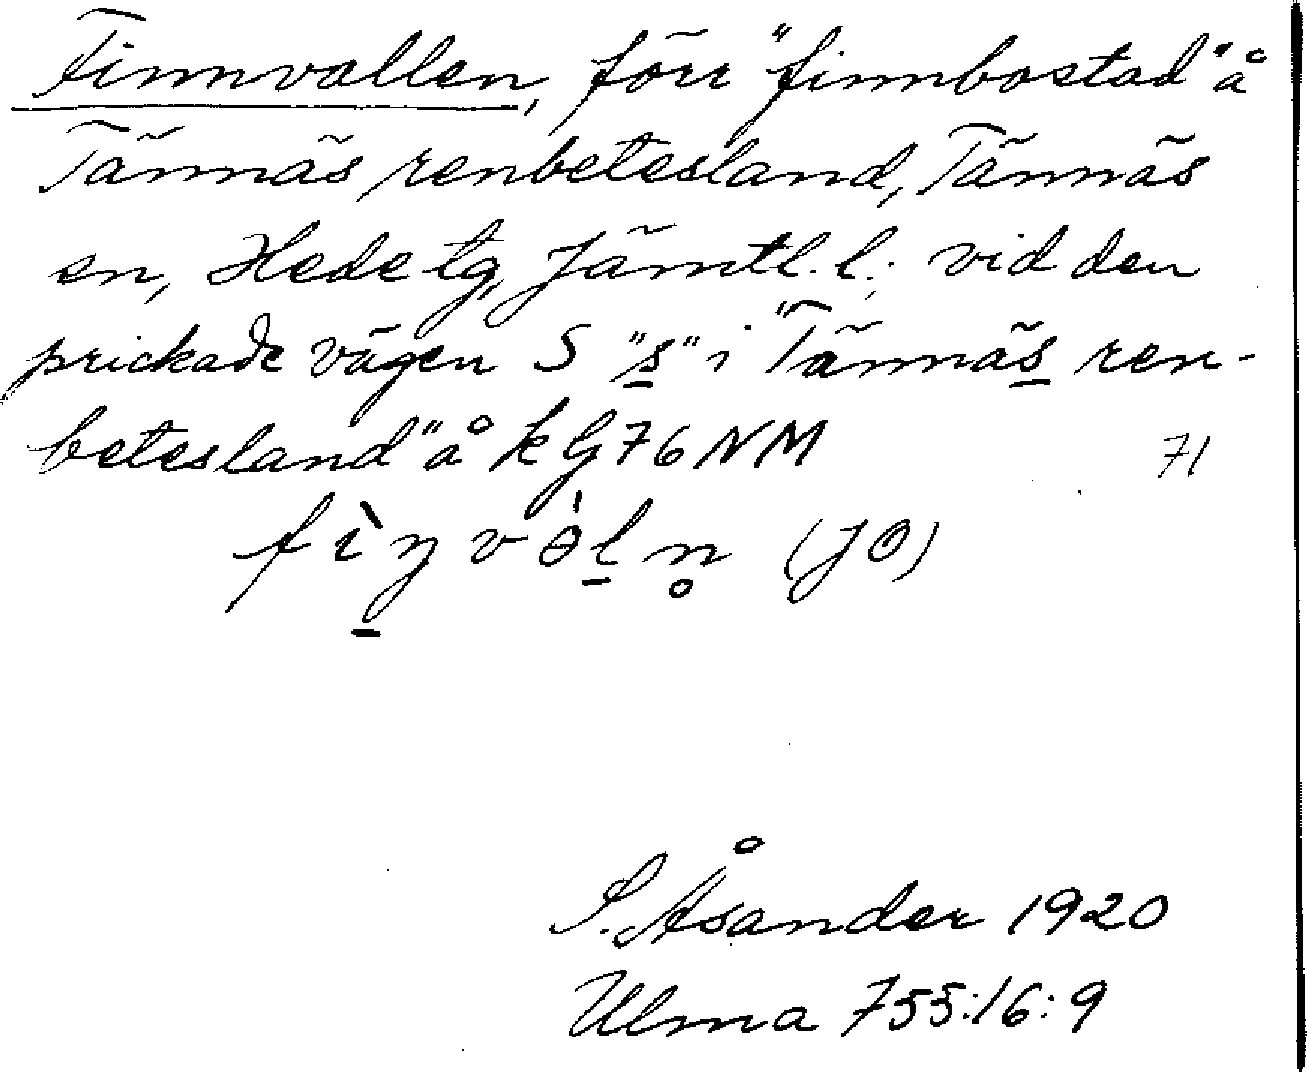 Finnvallen, förr "finnbostad" å
Tännäs renbetesland, Tännäs
sn, Hede tg, Jämtl. l.; vid den
prickade vägen S "s" i "Tännäs ren-
betesland" å k G 76 NM
71
(JO)
S. Åsander 1920
Ulma 755:16:9